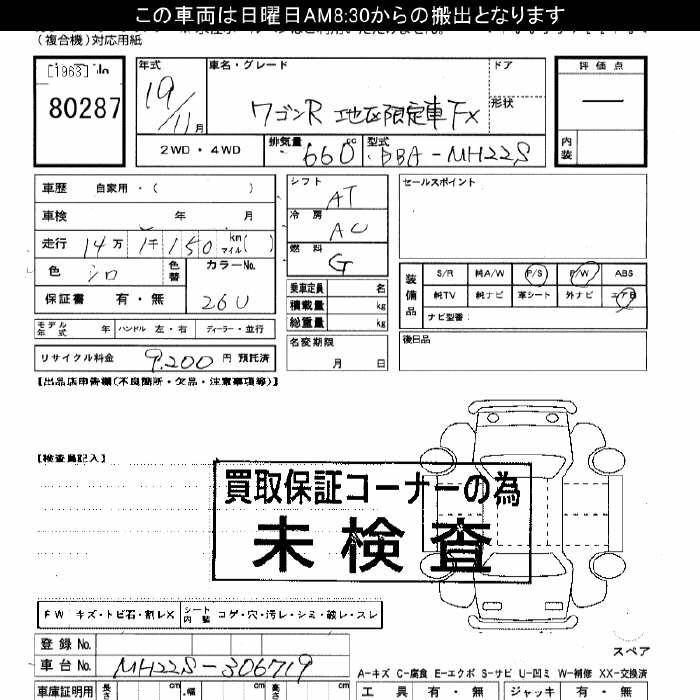 この車両は日曜日AM8:30からの搬出となります
(複合機)対応用紙
[1963] No
80287
年式 19/11月
車名・グレード
ワゴンR 地区限定車 FX
ドア
形状
評価点
—
内装
2WD・4WD
排気量 660 cc
型式 DBA-MH22S
車歴 自家用・( )
車検 年 月
走行 14万 1千 150 km マイル( )
色 シロ
色替
カラーNo. 26U
保証書 有・無
シフト AT
冷房 AC
燃料 G
乗車定員 名
積載量 kg
総重量 kg
セールスポイント
装備品
S/R 純A/W P/S P/W ABS
純TV 純ナビ 革シート 外ナビ エアB
ナビ型番:
モデル年式 年 ハンドル 左・右 ディーラー・並行
リサイクル料金 9,200 円 預託済
名変期限
月 日
後日品
【出品店申告欄(不良箇所・欠品・注意事項等)】
【検査員記入】
買取保証コーナーの為
未検査
FW キズ・トビ石・割レX シート内装 コゲ・穴・汚レ・シミ・破レ・スレ
登録No.
車台No. MH22S-306719
スペア
A-キズ C-腐食 E-エクボ S-サビ U-凹ミ W-補修 XX-交換済
車庫証明用 長さ cm 幅 cm 高さ cm
工具 有・無 ジャッキ 有・無